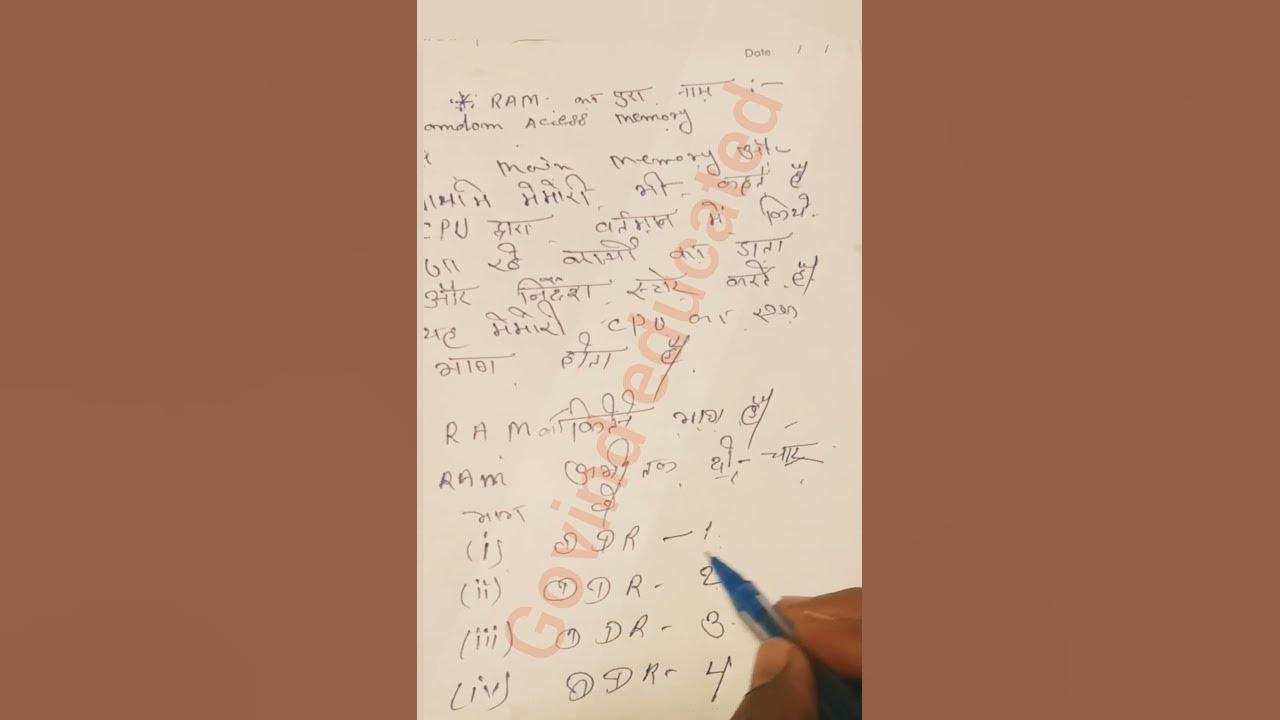 Date: / /
* RAM का पुरा नाम :-
amdom Acless memory
main memory और
मेमोरी भी कहते हैं
CPU द्वारा वर्तमान में किये
जा रहे कार्यों का डाता
और निर्देश स्टोर करते हैं/
यह मेमोरी CPU का एक
भाग होता हैं/
RAM के कितने भाग हैं/
RAM अभी तक ही- चार
भाग है
(i) DDR - 1
(ii) DDR - 2
(iii) DDR - 3
(iv) DDR - 4
Govind educated